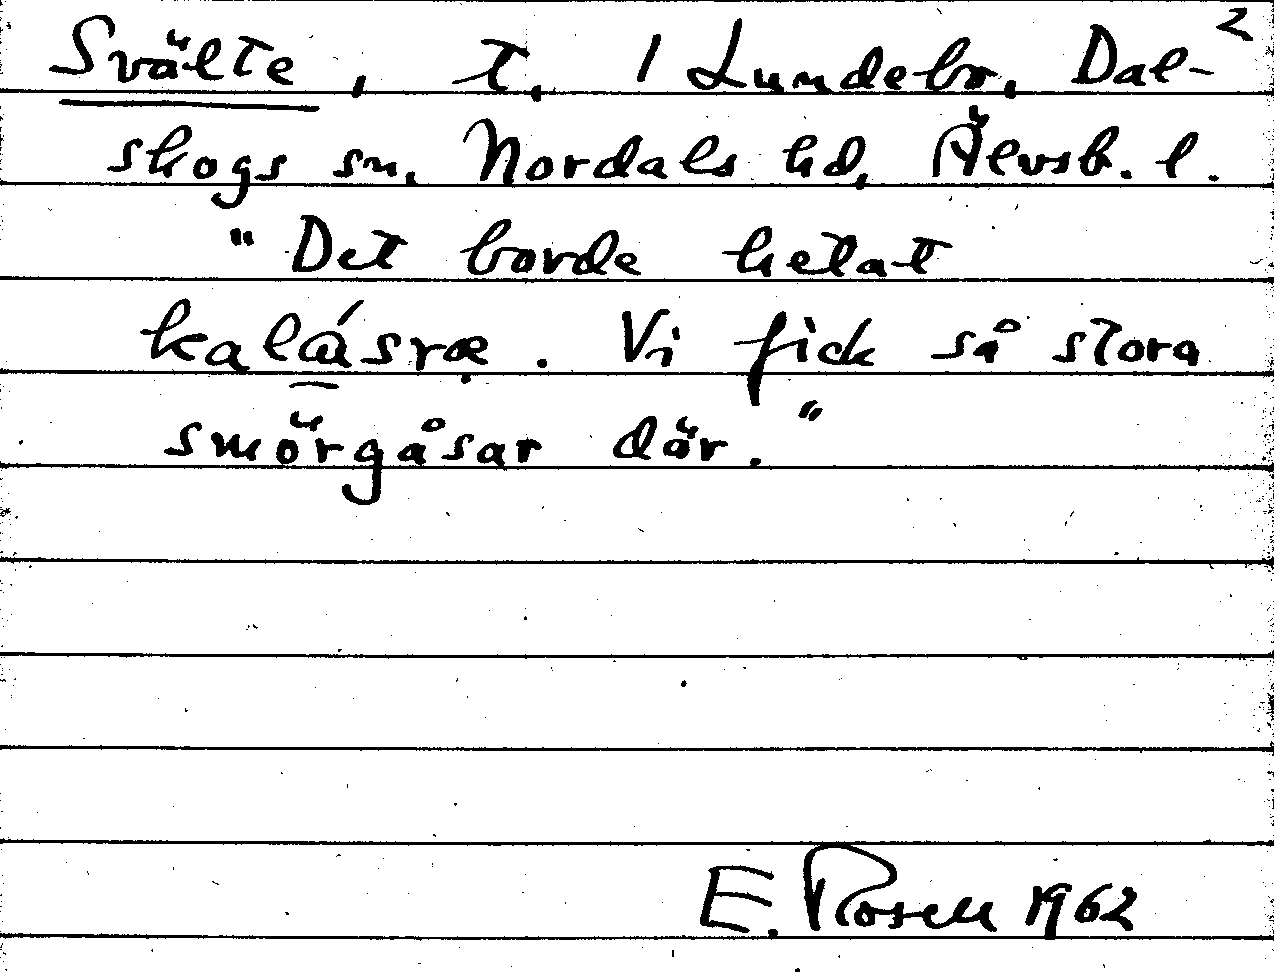 2
Svälte, t. 1 Lundebo, Dal-
skogs sn. Nordals hd, Älvsb. l.
"Det borde hetat
kalásræ. Vi fick så stora
smörgåsar där."
E. Rosell 1962